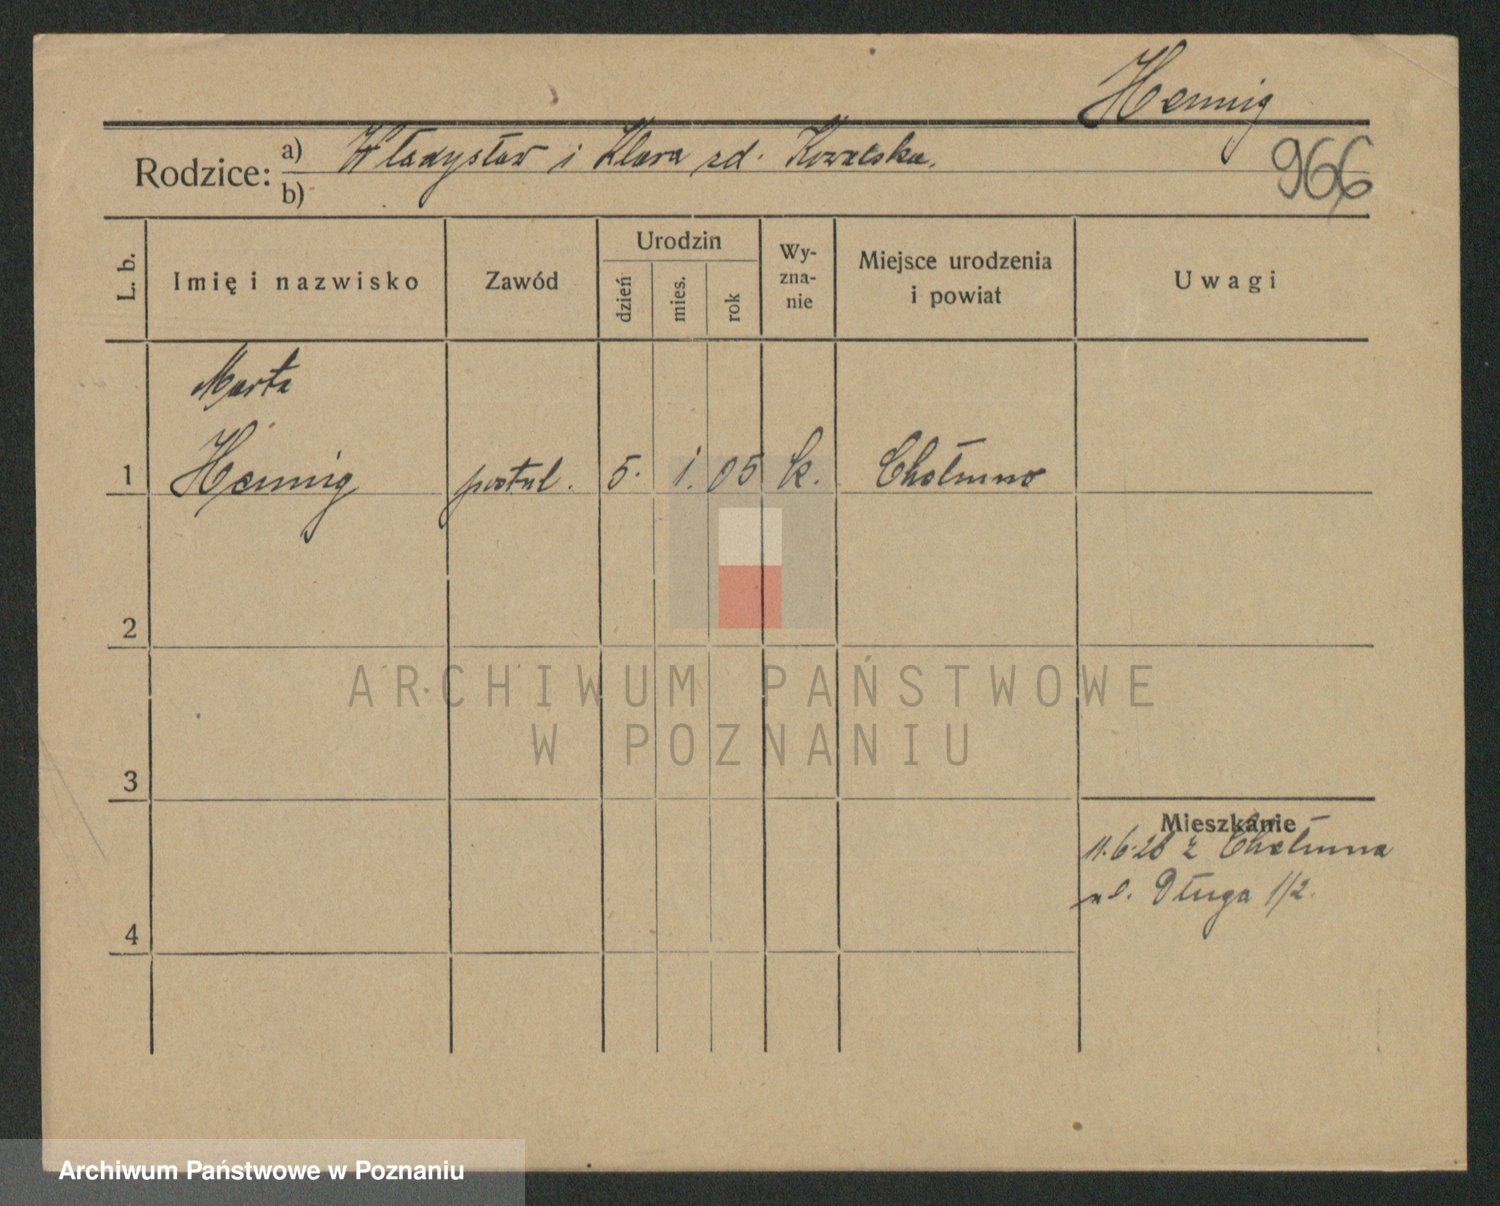 Hennig
966
Rodzice: a) Władysław i Klara zd. Kowalska.
b)
L. b.
Imię i nazwisko
Zawód
Urodzin
dzień
mies.
rok
Wy-
zna-
nie
Miejsce urodzenia
i powiat
Uwagi
Marta
1 Hennig postul. 5. 1. 05 k. Chełmno
2
3
4
Mieszkanie
11.6.28 z Chełmna
ul. Długa 1/2.
ARCHIWUM PAŃSTWOWE
W POZNANIU
Archiwum Państwowe w Poznaniu